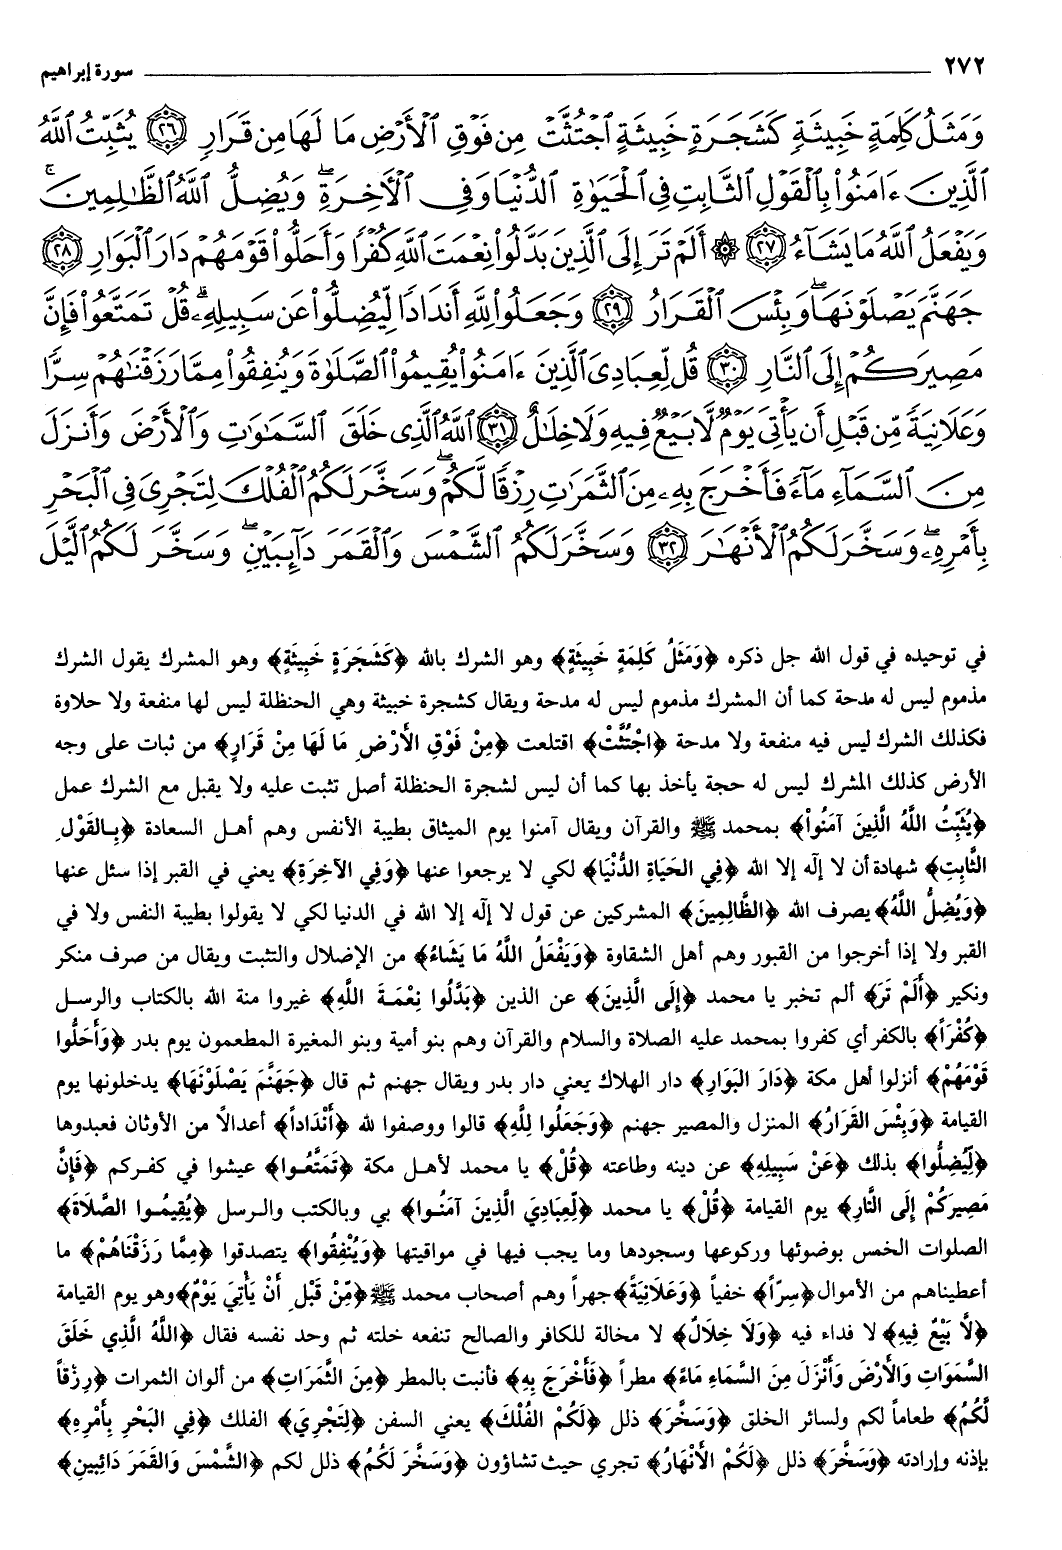 ٢٧٢ سورة إبراهيم
وَمَثَلُ كَلِمَةٍ خَبِيثَةٍ كَشَجَرَةٍ خَبِيثَةٍ ٱجْتُثَّتْ مِن فَوْقِ ٱلْأَرْضِ مَا لَهَا مِن قَرَارٍ ٢٦ يُثَبِّتُ ٱللَّهُ
ٱلَّذِينَ ءَامَنُوا۟ بِٱلْقَوْلِ ٱلثَّابِتِ فِى ٱلْحَيَوٰةِ ٱلدُّنْيَا وَفِى ٱلْأَخِرَةِ ۖ وَيُضِلُّ ٱللَّهُ ٱلظَّٰلِمِينَ ۚ
وَيَفْعَلُ ٱللَّهُ مَا يَشَآءُ ٢٧ ۞ أَلَمْ تَرَ إِلَى ٱلَّذِينَ بَدَّلُوا۟ نِعْمَتَ ٱللَّهِ كُفْرًا وَأَحَلُّوا۟ قَوْمَهُمْ دَارَ ٱلْبَوَارِ ٢٨
جَهَنَّمَ يَصْلَوْنَهَا ۖ وَبِئْسَ ٱلْقَرَارُ ٢٩ وَجَعَلُوا۟ لِلَّهِ أَندَادًا لِّيُضِلُّوا۟ عَن سَبِيلِهِۦ ۗ قُلْ تَمَتَّعُوا۟ فَإِنَّ
مَصِيرَكُمْ إِلَى ٱلنَّارِ ٣٠ قُل لِّعِبَادِىَ ٱلَّذِينَ ءَامَنُوا۟ يُقِيمُوا۟ ٱلصَّلَوٰةَ وَيُنفِقُوا۟ مِمَّا رَزَقْنَٰهُمْ سِرًّا
وَعَلَانِيَةً مِّن قَبْلِ أَن يَأْتِىَ يَوْمٌ لَّا بَيْعٌ فِيهِ وَلَا خِلَٰلٌ ٣١ ٱللَّهُ ٱلَّذِى خَلَقَ ٱلسَّمَٰوَٰتِ وَٱلْأَرْضَ وَأَنزَلَ
مِنَ ٱلسَّمَآءِ مَآءً فَأَخْرَجَ بِهِۦ مِنَ ٱلثَّمَرَٰتِ رِزْقًا لَّكُمْ ۖ وَسَخَّرَ لَكُمُ ٱلْفُلْكَ لِتَجْرِىَ فِى ٱلْبَحْرِ
بِأَمْرِهِۦ ۖ وَسَخَّرَ لَكُمُ ٱلْأَنْهَٰرَ ٣٢ وَسَخَّرَ لَكُمُ ٱلشَّمْسَ وَٱلْقَمَرَ دَآئِبَيْنِ ۖ وَسَخَّرَ لَكُمُ ٱلَّيْلَ
في توحيده في قول الله جل ذكره ﴿وَمَثَلُ كَلِمَةٍ خَبِيثَةٍ﴾ وهو الشرك بالله ﴿كَشَجَرَةٍ خَبِيثَةٍ﴾ وهو المشرك يقول الشرك
مذموم ليس له مدحة كما أن المشرك مذموم ليس له مدحة ويقال كشجرة خبيثة وهي الحنظلة ليس لها منفعة ولا حلاوة
فكذلك الشرك ليس فيه منفعة ولا مدحة ﴿اجْتُثَّتْ﴾ اقتلعت ﴿مِنْ فَوْقِ الأَرْضِ مَا لَهَا مِنْ قَرَارٍ﴾ من ثبات على وجه
الأرض كذلك المشرك ليس له حجة يأخذ بها كما أن ليس لشجرة الحنظلة أصل تثبت عليه ولا يقبل مع الشرك عمل
﴿يُثَبِّتُ اللَّهُ الَّذِينَ آمَنُواْ﴾ بمحمد ﷺ والقرآن ويقال آمنوا يوم الميثاق بطيبة الأنفس وهم أهل السعادة ﴿بِالقَوْلِ
الثَّابِتِ﴾ شهادة أن لا إلٰه إلا الله ﴿فِي الحَيَاةِ الدُّنْيَا﴾ لكي لا يرجعوا عنها ﴿وَفِي الآخِرَةِ﴾ يعني في القبر إذا سئل عنها
﴿وَيُضِلُّ اللَّهُ﴾ يصرف الله ﴿الظَّالِمِينَ﴾ المشركين عن قول لا إلٰه إلا الله في الدنيا لكي لا يقولوا بطيبة النفس ولا في
القبر ولا إذا أخرجوا من القبور وهم أهل الشقاوة ﴿وَيَفْعَلُ اللَّهُ مَا يَشَاءُ﴾ من الإضلال والتثبت ويقال من صرف منكر
ونكير ﴿أَلَمْ تَرَ﴾ ألم تخبر يا محمد ﴿إِلَى الَّذِينَ﴾ عن الذين ﴿بَدَّلُوا نِعْمَةَ اللَّهِ﴾ غيروا منة الله بالكتاب والرسل
﴿كُفْرَاً﴾ بالكفر أي كفروا بمحمد عليه الصلاة والسلام والقرآن وهم بنو أمية وبنو المغيرة المطعمون يوم بدر ﴿وَأَحَلُّوا
قَوْمَهُمْ﴾ أنزلوا أهل مكة ﴿دَارَ البَوَارِ﴾ دار الهلاك يعني دار بدر ويقال جهنم ثم قال ﴿جَهَنَّمَ يَصْلَوْنَهَا﴾ يدخلونها يوم
القيامة ﴿وَبِئْسَ القَرَارُ﴾ المنزل والمصير جهنم ﴿وَجَعَلُوا لِلَّهِ﴾ قالوا ووصفوا لله ﴿أَنْدَاداً﴾ أعدالاً من الأوثان فعبدوها
﴿لِّيُضِلُّوا﴾ بذلك ﴿عَنْ سَبِيلِهِ﴾ عن دينه وطاعته ﴿قُلْ﴾ يا محمد لأهل مكة ﴿تَمَتَّعُوا﴾ عيشوا في كفركم ﴿فَإِنَّ
مَصِيرَكُمْ إِلَى النَّارِ﴾ يوم القيامة ﴿قُلْ﴾ يا محمد ﴿لِّعِبَادِيَ الَّذِينَ آمَنُوا﴾ بي وبالكتب والرسل ﴿يُقِيمُوا الصَّلَاةَ﴾
الصلوات الخمس بوضوئها وركوعها وسجودها وما يجب فيها في مواقيتها ﴿وَيُنْفِقُوا﴾ يتصدقوا ﴿مِمَّا رَزَقْنَاهُمْ﴾ ما
أعطيناهم من الأموال ﴿سِرّاً﴾ خفياً ﴿وَعَلَانِيَةً﴾ جهراً وهم أصحاب محمد ﷺ ﴿مِّنْ قَبْلِ أَنْ يَأْتِيَ يَوْمٌ﴾ وهو يوم القيامة
﴿لَّا بَيْعٌ فِيهِ﴾ لا فداء فيه ﴿وَلَا خِلَالٌ﴾ لا مخالة للكافر والصالح تنفعه خلته ثم وحد نفسه فقال ﴿اللَّهُ الَّذِي خَلَقَ
السَّمَوَاتِ وَالأَرْضَ وَأَنْزَلَ مِنَ السَّمَاءِ مَاءً﴾ مطراً ﴿فَأَخْرَجَ بِهِ﴾ فأنبت بالمطر ﴿مِنَ الثَّمَرَاتِ﴾ من ألوان الثمرات ﴿رِزْقاً
لَّكُمُ﴾ طعاماً لكم ولسائر الخلق ﴿وَسَخَّرَ﴾ ذلل ﴿لَكُمْ الفُلْكَ﴾ يعني السفن ﴿لِتَجْرِيَ﴾ الفلك ﴿فِي البَحْرِ بِأَمْرِهِ﴾
بإذنه وإرادته ﴿وَسَخَّرَ﴾ ذلل ﴿لَكُمْ الأَنْهَارُ﴾ تجري حيث تشاؤون ﴿وَسَخَّرَ لَكُمُ﴾ ذلل لكم ﴿الشَّمْسَ وَالقَمَرَ دَائِبينِ﴾